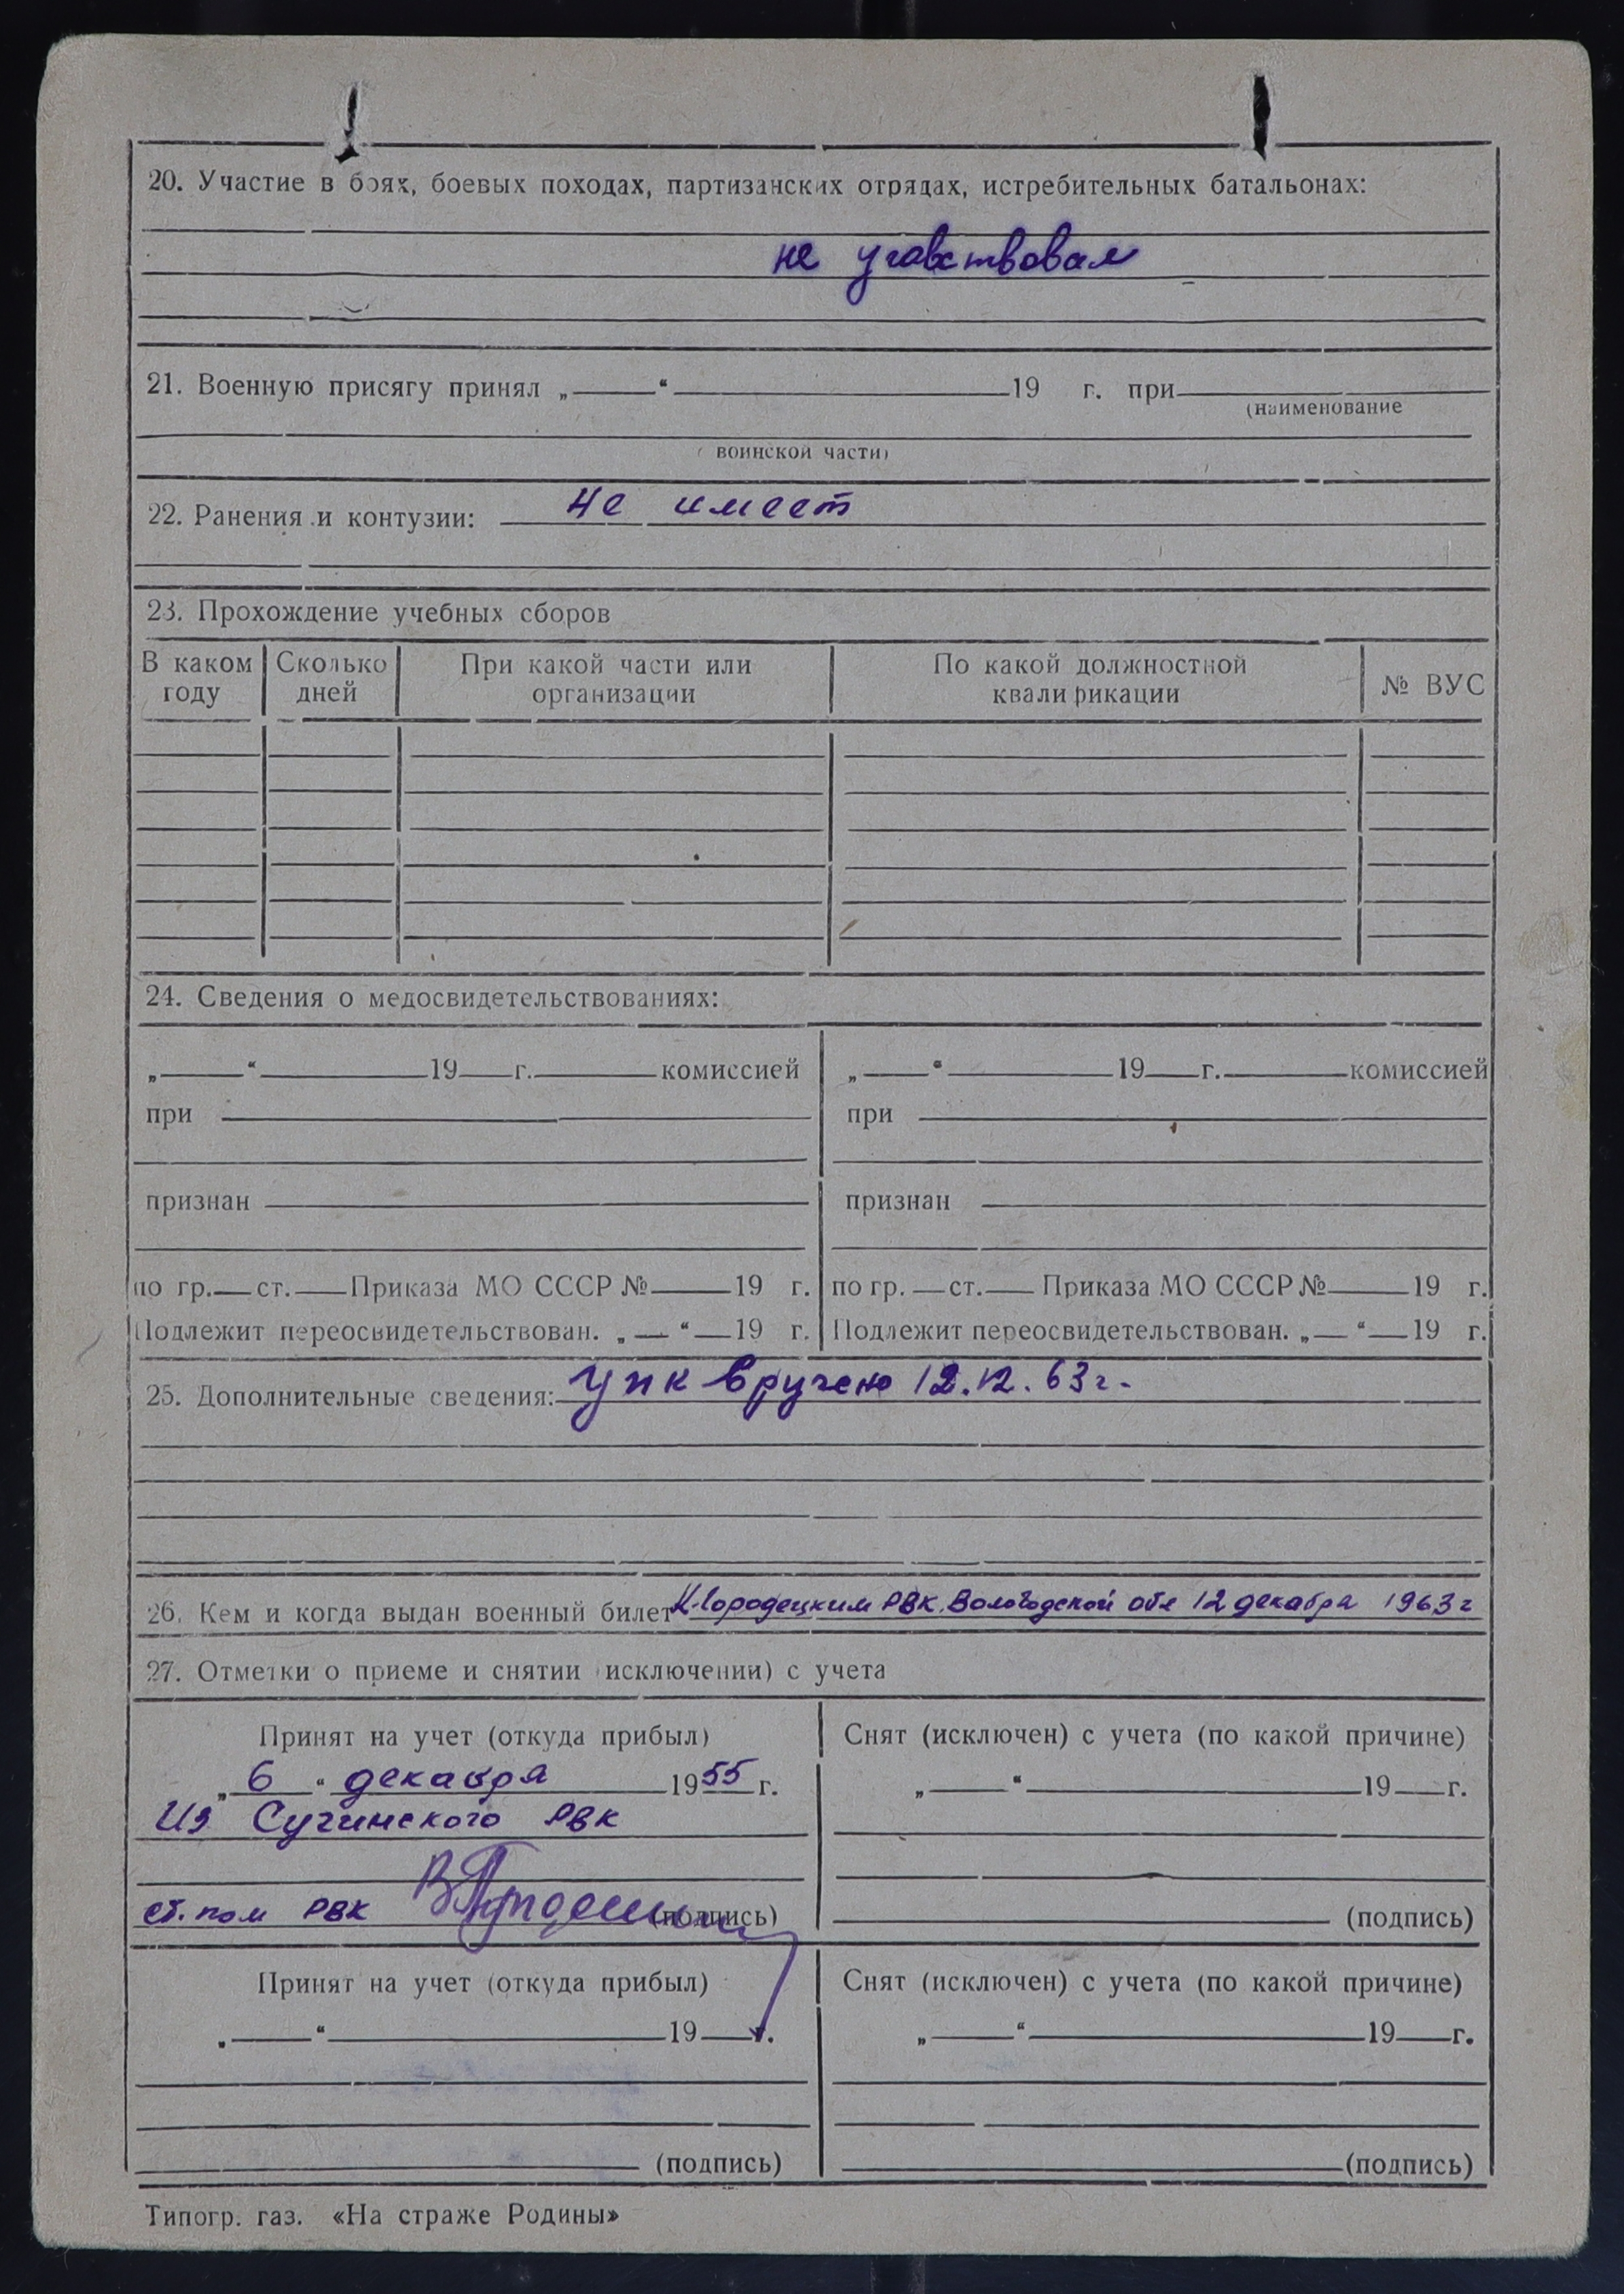 20. Участие в боях, боевых походах, партизанских отрядах, истребительных батальонах:
не участвовал
21. Военную присягу принял „ “ 19 г. при
(наименование
воинской части)
22. Ранения и контузии: не имеет
23. Прохождение учебных сборов
В каком году Сколько дней При какой части или организации По какой должностной квалификации № ВУС
24. Сведения о медосвидетельствованиях:
„ “ 19 г. комиссией „ “ 19 г. комиссией
при при
признан признан
по гр. ст. Приказа МО СССР № 19 г. по гр. ст. Приказа МО СССР № 19 г.
Подлежит переосвидетельствован. „ “ 19 г. Подлежит переосвидетельствован. „ “ 19 г.
25. Дополнительные сведения: УПК вручено 12.12.63г.
26. Кем и когда выдан военный билет К-Городецким РВК. Вологодской обл 12 декабря 1963 г
27. Отметки о приеме и снятии (исключении) с учета
Принят на учет (откуда прибыл) Снят (исключен) с учета (по какой причине)
„ 6 “ декабря 1955 г. „ “ 19 г.
Из РВК
ст. пом РВК (подпись) (подпись)
Принят на учет (откуда прибыл) Снят (исключен) с учета (по какой причине)
„ “ 19 г. „ “ 19 г.
(подпись) (подпись)
Типогр. газ. «На страже Родины»